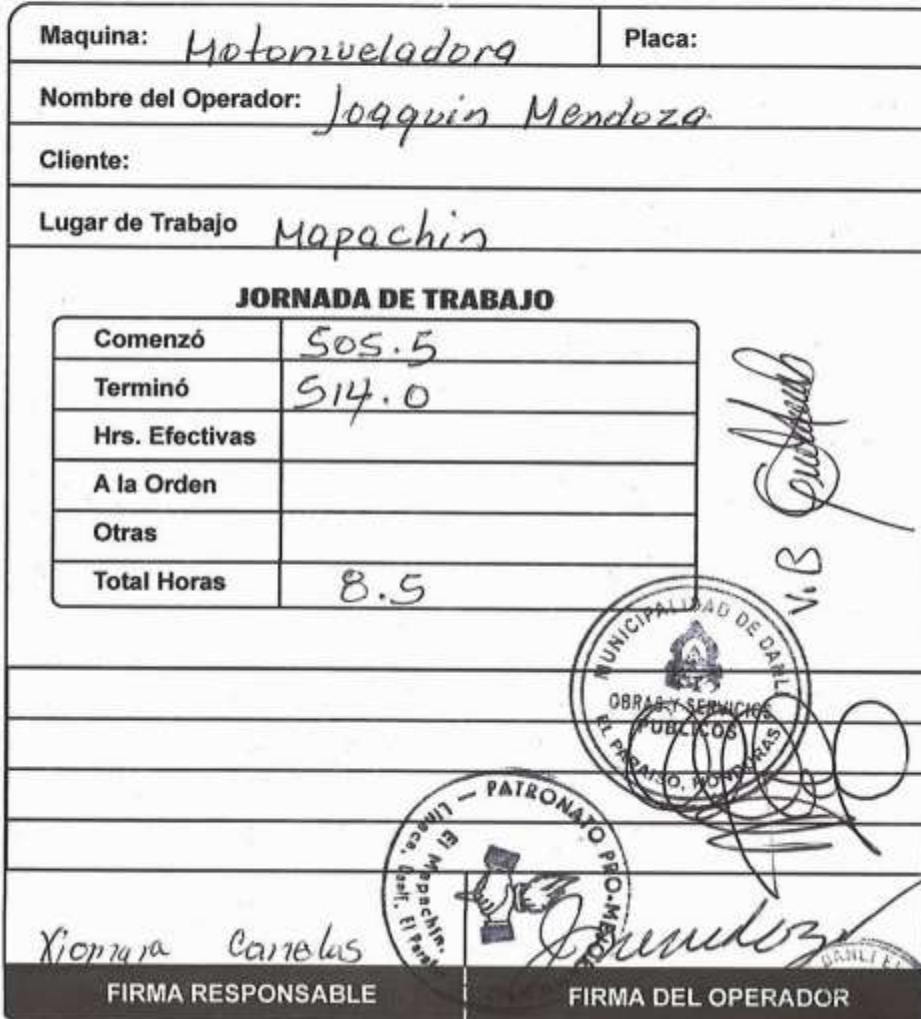 Maquina: Motoniveladora Placa:
Nombre del Operador: Joaquin Mendoza
Cliente:
Lugar de Trabajo Mapachin
JORNADA DE TRABAJO
Comenzó 505.5
Terminó 514.0
Hrs. Efectivas
A la Orden
Otras
Total Horas 8.5
V.B
MUNICIPALIDAD DE DANLI
OBRAS Y SERVICIOS
PUBLICOS
EL PARAISO, HONDURAS
PATRONATO PRO-MEJO
El Mapachin,
Linaca, Danlí, El Paraí
Xiomara Canelas
Jmendoza
DANLI E
FIRMA RESPONSABLE FIRMA DEL OPERADOR